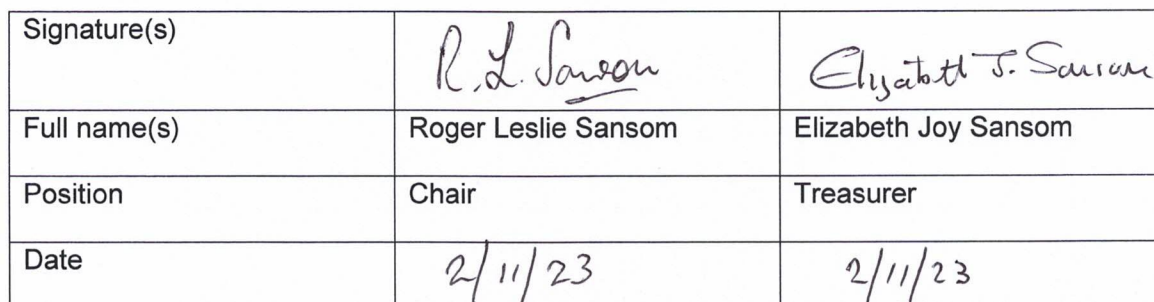 Signature(s) R.L. Sansom Elizabeth J. Sansom
Full name(s) Roger Leslie Sansom Elizabeth Joy Sansom
Position Chair Treasurer
Date 2/11/23 2/11/23